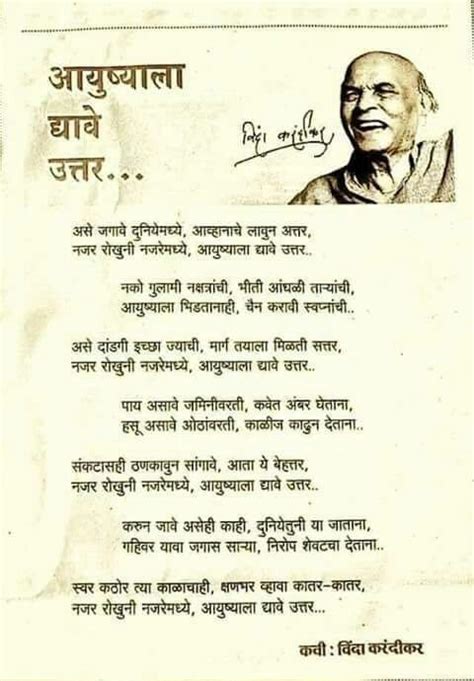 आयुष्याला
द्यावे
उत्तर...
विंदा करंदीकर
असे जगावे दुनियेमध्ये, आव्हानाचे लावुन अत्तर,
नजर रोखुनी नजरेमध्ये, आयुष्याला द्यावे उत्तर..
नको गुलामी नक्षत्रांची, भीती आंधळी ताऱ्यांची,
आयुष्याला भिडतानाही, चैन करावी स्वप्नांची..
असे दांडगी इच्छा ज्याची, मार्ग तयाला मिळती सत्तर,
नजर रोखुनी नजरेमध्ये, आयुष्याला द्यावे उत्तर..
पाय असावे जमिनीवरती, कवेत अंबर घेताना,
हसू असावे ओठांवरती, काळीज काढुन देताना..
संकटासही ठणकावुन सांगावे, आता ये बेहत्तर,
नजर रोखुनी नजरेमध्ये, आयुष्याला द्यावे उत्तर..
करुन जावे असेही काही, दुनियेतुनी या जाताना,
गहिवर यावा जगास साऱ्या, निरोप शेवटचा देताना..
स्वर कठोर त्या काळाचाही, क्षणभर व्हावा कातर-कातर,
नजर रोखुनी नजरेमध्ये, आयुष्याला द्यावे उत्तर...
कवी : विंदा करंदीकर